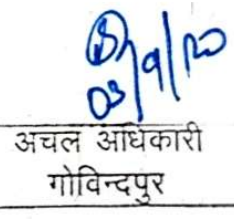 03/9/20
अचल अधिकारी
गोविन्दपुर